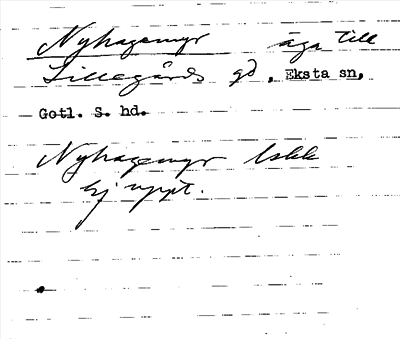 Nyhagemyr äga till
Lillegårds gd, Eksta sn,
Gotl. S. hd.
Nyhagemyr Iskk
ej uppt.